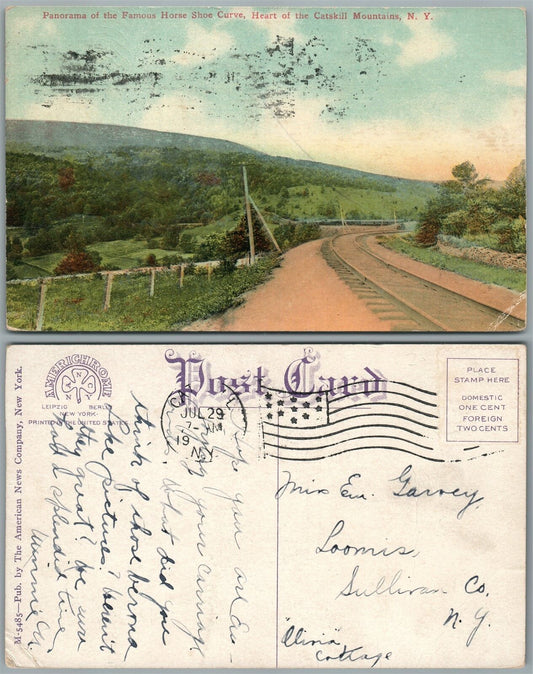 Panorama of the Famous Horse Shoe Curve, Heart of the Catskill Mountains, N. Y.
AMERICHROME
ANN CO
LEIPZIG BERLIN
NEW-YORK-
PRINTED IN THE UNITED STATES
Post Card
JUL 29
7- AM
19
N.Y.
PLACE
STAMP HERE
DOMESTIC
ONE CENT
FOREIGN
TWO CENTS
M-5485—Pub. by The American News Company, New York.
Hope you are En-
joying your carriage
What did you
think of those Verona
Lake pictures? Weren't
they great? We sure
had a splendid time
Minnie G.
Miss Em. Garvey,
Loomis,
Sullivan Co.
N.Y.
Cottage